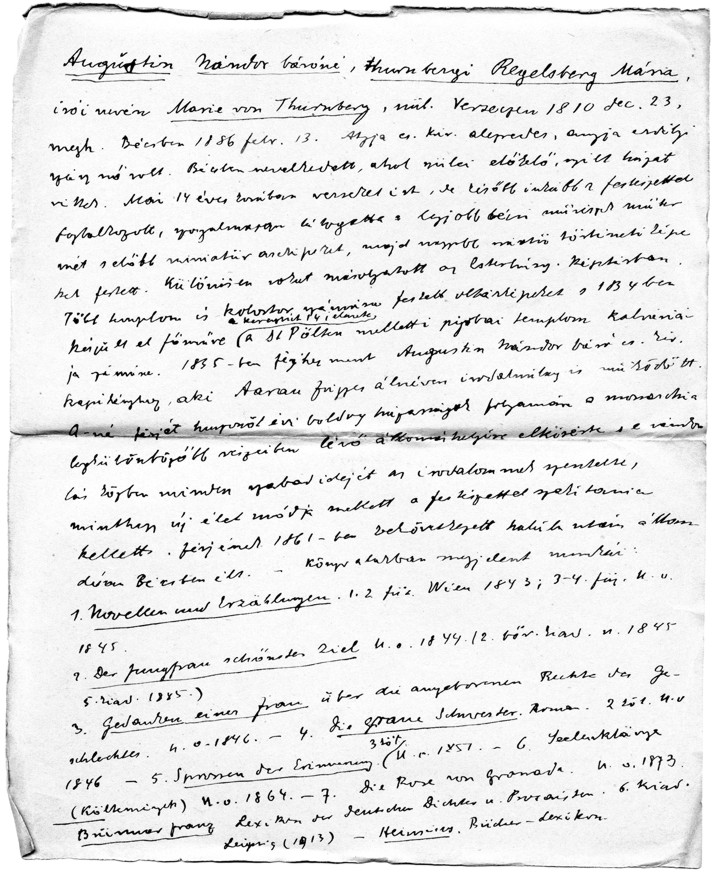 Augustin Nándor báróné, thurnbergi Regelsberg Mária,
írói nevén Marie von Thurnberg, szül. Verseczen 1810 dec. 23,
megh. Bécsben 1886 febr. 13. Atyja cs. kir. alezredes, anyja erdélyi
szász nő volt. Bécsben nevelkedett, ahol szülei előkelő, nyilt házat
vittek. Már 14 éves korában verseket írt, de később inkább a festészettel
foglalkozott, szorgalmasan látogatta a legjobb bécsi művészek műter
mét s előbb miniatür arcképeket, majd nagyobb méretű történeti képe
ket festett. Különösen sokat másolgatott az Esterházy-képtárban.
Több templom és kolostor számára festett oltárképeket s 1834-ben
a keresztút 14 állomása
készült el főműve (a St Pölten melletti templom kálváriá
ja számára. 1835-ben férjhez ment Augustin Nándor báró cs. kir.
kapitányhoz, aki álnéven irodalmilag is működött.
A-né férjét huszonöt évi boldog házasságuk folyamán a monarchia
legkülönbözőbb részeiben lévő állomáshelyére elkísérte s e vándor
lás közben minden szabad idejét az irodalomnak szentelte,
minthogy új élet módja mellett a festészettel szakítania
kellett. Férjének 1861-ben bekövetkezett halála után állan
dóan Bécsben élt. – Könyvalakban megjelent munkái:
1. Novellen und Erzählungen. 1-2 füz. Wien 1843; 3-4. füz. U. o.
1845.
2. Der Jungfrau schönstes Ziel U. o. 1844. (2. bőv. kiad. u. 1845
5. kiad. 1885.)
3. Gedanken einer Frau über die angeborenen Rechte des Ge-
schlechtes. U. o. 1846. – 4. Die graue Schwester. Roman. 2 köt. U. o
3 köt.
1846 – 5. Sprossen der Erinnerung. (U. o. 1851. – 6. Seelenklänge
(Költemények) U. o. 1864. – 7. Die Rose von Granada. U. o. 1873.
Brümmer Franz Lexikon der deutschen Dichter u. Prosaisten. 6. kiad.
Leipzig (1913) – Heinsius, Bücher-Lexikon.